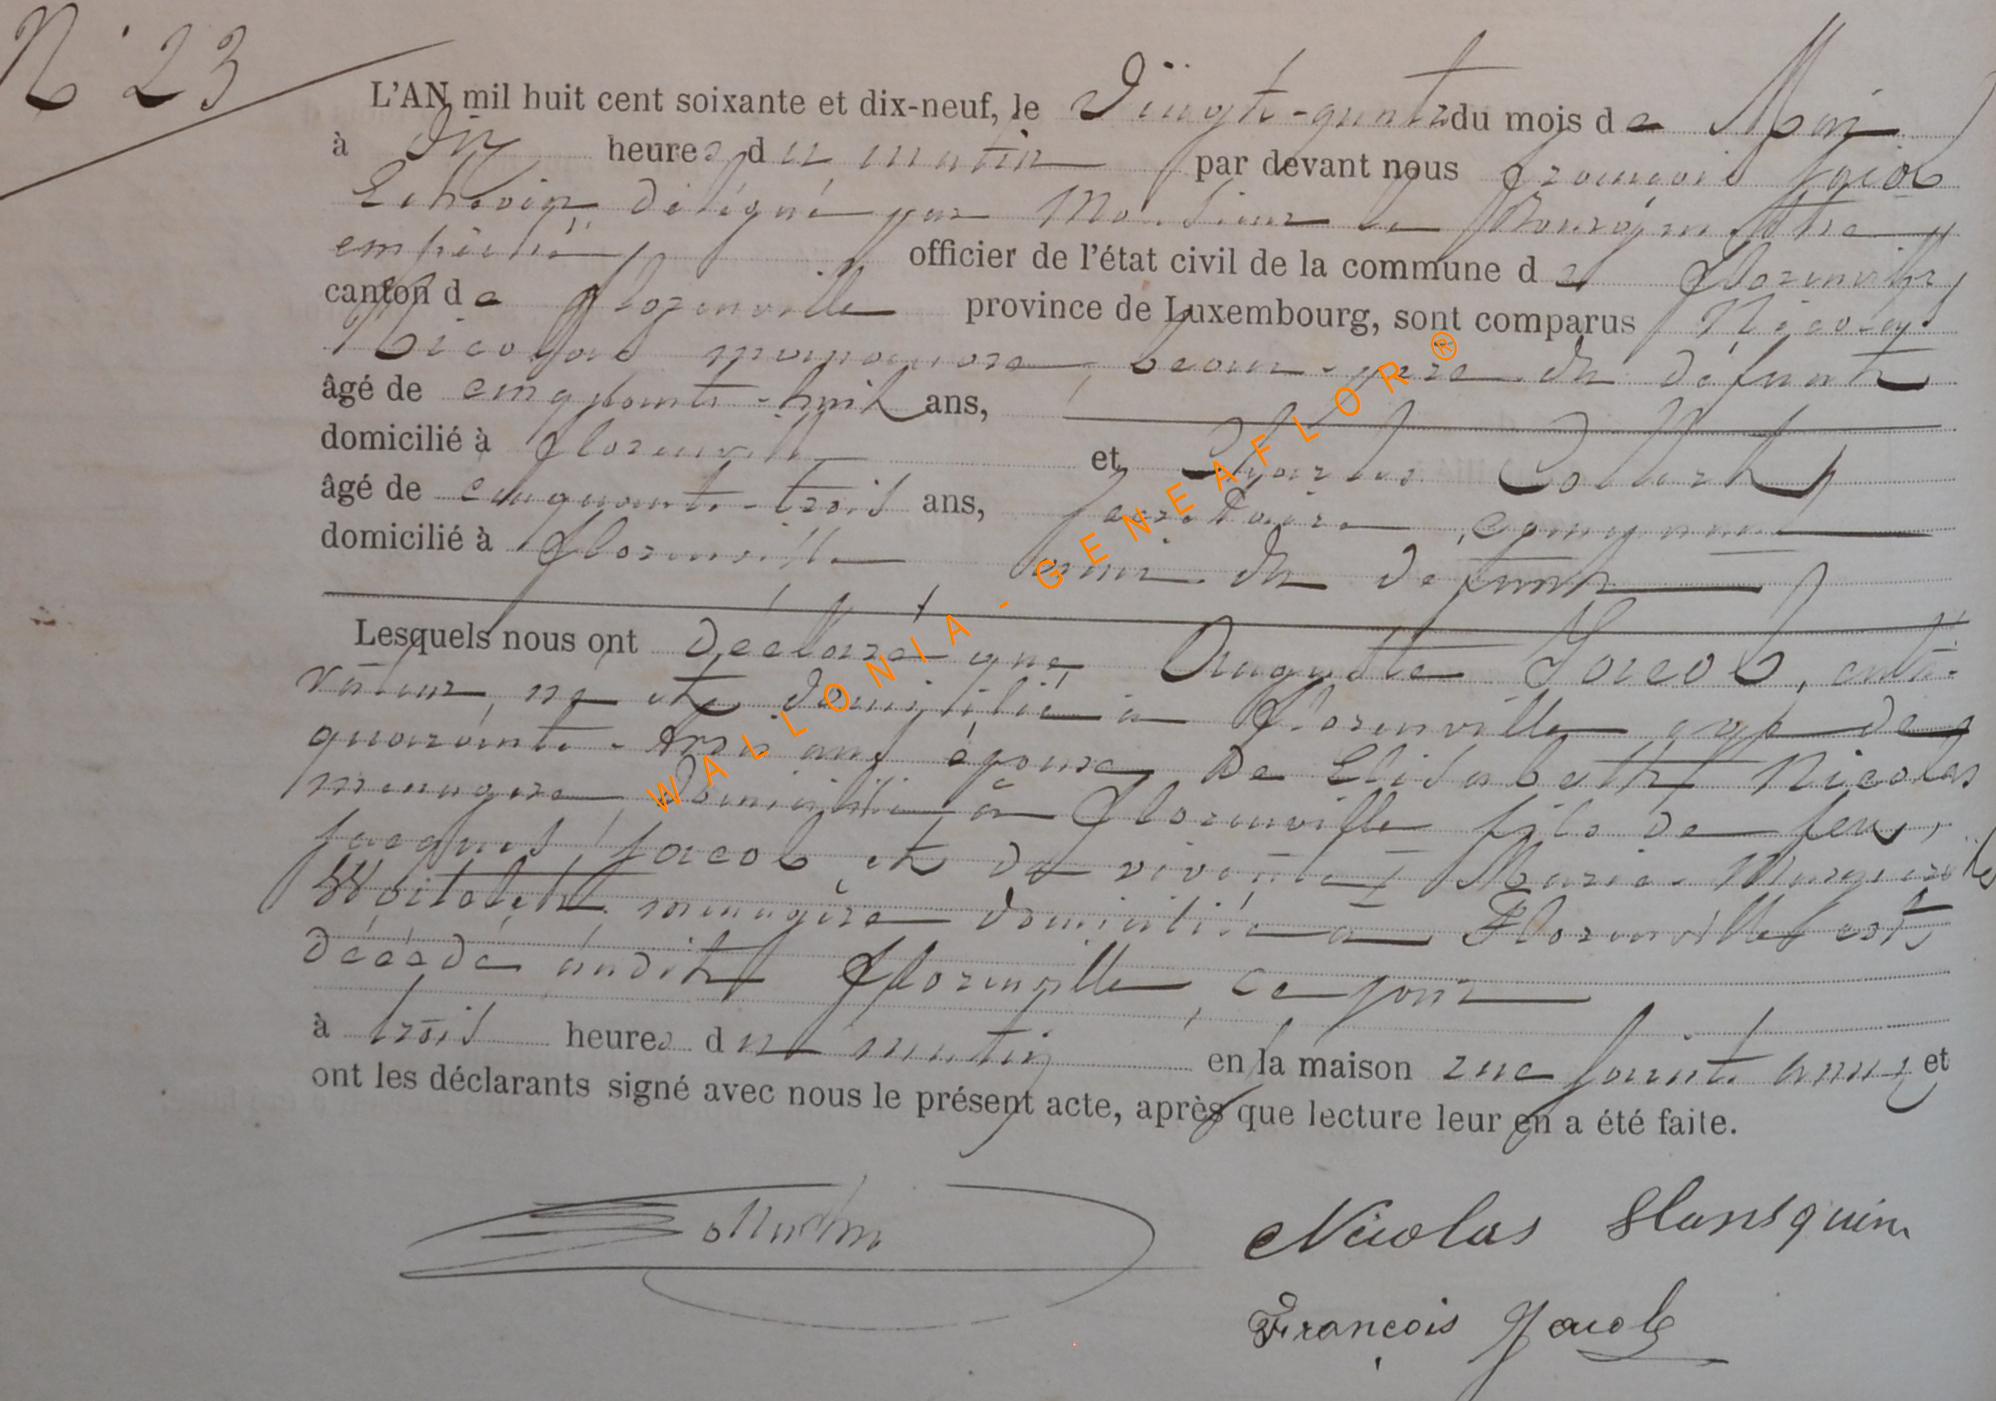 N° 23
L'AN mil huit cent soixante et dix-neuf, le Vingt-quatre du mois de Mai
à Dix heures du matin par devant nous François Jacob
Echevin délégué par Monsieur le Bourgmestre
empêché officier de l'état civil de la commune de Florenville
canton de Florenville province de Luxembourg, sont comparus Nicolas
beau-père du défunt
âgé de cinquante-huit ans,
domicilié à Florenville et Charles Collard
âgé de cinquante-trois ans, secrétaire communal
domicilié à Florenville ami du défunt
Lesquels nous ont déclaré que Auguste Jacob, culti-
vateur, né et domicilié à Florenville agé de
quarante-trois ans époux de Elisabeth Nicolas
menagère domiciliée à Florenville fils de feu
Jacques Jacob et de vivante Marie-Marguerite
menagère domiciliée à Florenville est
décédé audit Florenville, ce jour
à trois heures du matin en la maison rue Sainte Anne et
ont les déclarants signé avec nous le présent acte, après que lecture leur en a été faite.
Nicolas Hansquin
François Jacob
WALLONIA-GENEAFLOR®